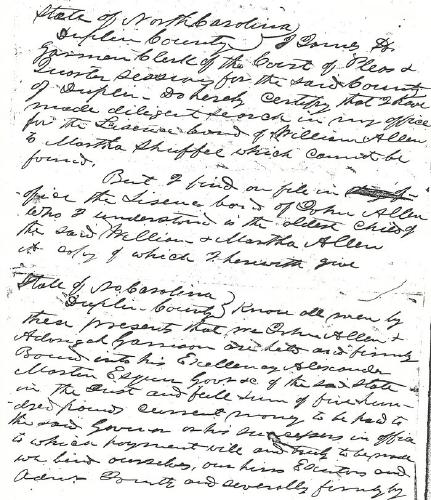 State of North Carolina
Duplin County } I James H.
Clerk of the Cort of Pleas &
Quarter Sessions for the said County
of Duplin. Do hereby Certify that I have
made diligent search in my office
for the Lisence bond of William Allen
to Martha Shuffee which cannot be
found.
But I find on file in
office the Lisence bond of John Allen
who I understand is the oldest child of
the said William & Martha Allen
A copy of which I herewith give
State of No Carolina
Duplin County } Know all men by
these presents that we John Allen &
Garrison are held and firmly
Bound unto his Excellency Alexander
Martin Esquire Govr &c of the said State
in the Just and full sum of five Hun-
dred pounds current money to be paid to
the said Governor or his successors in office
to which payment will and truly to be made
we bind ourselves, our hirs Exetors and
Admrs Jointly and severally firmly by